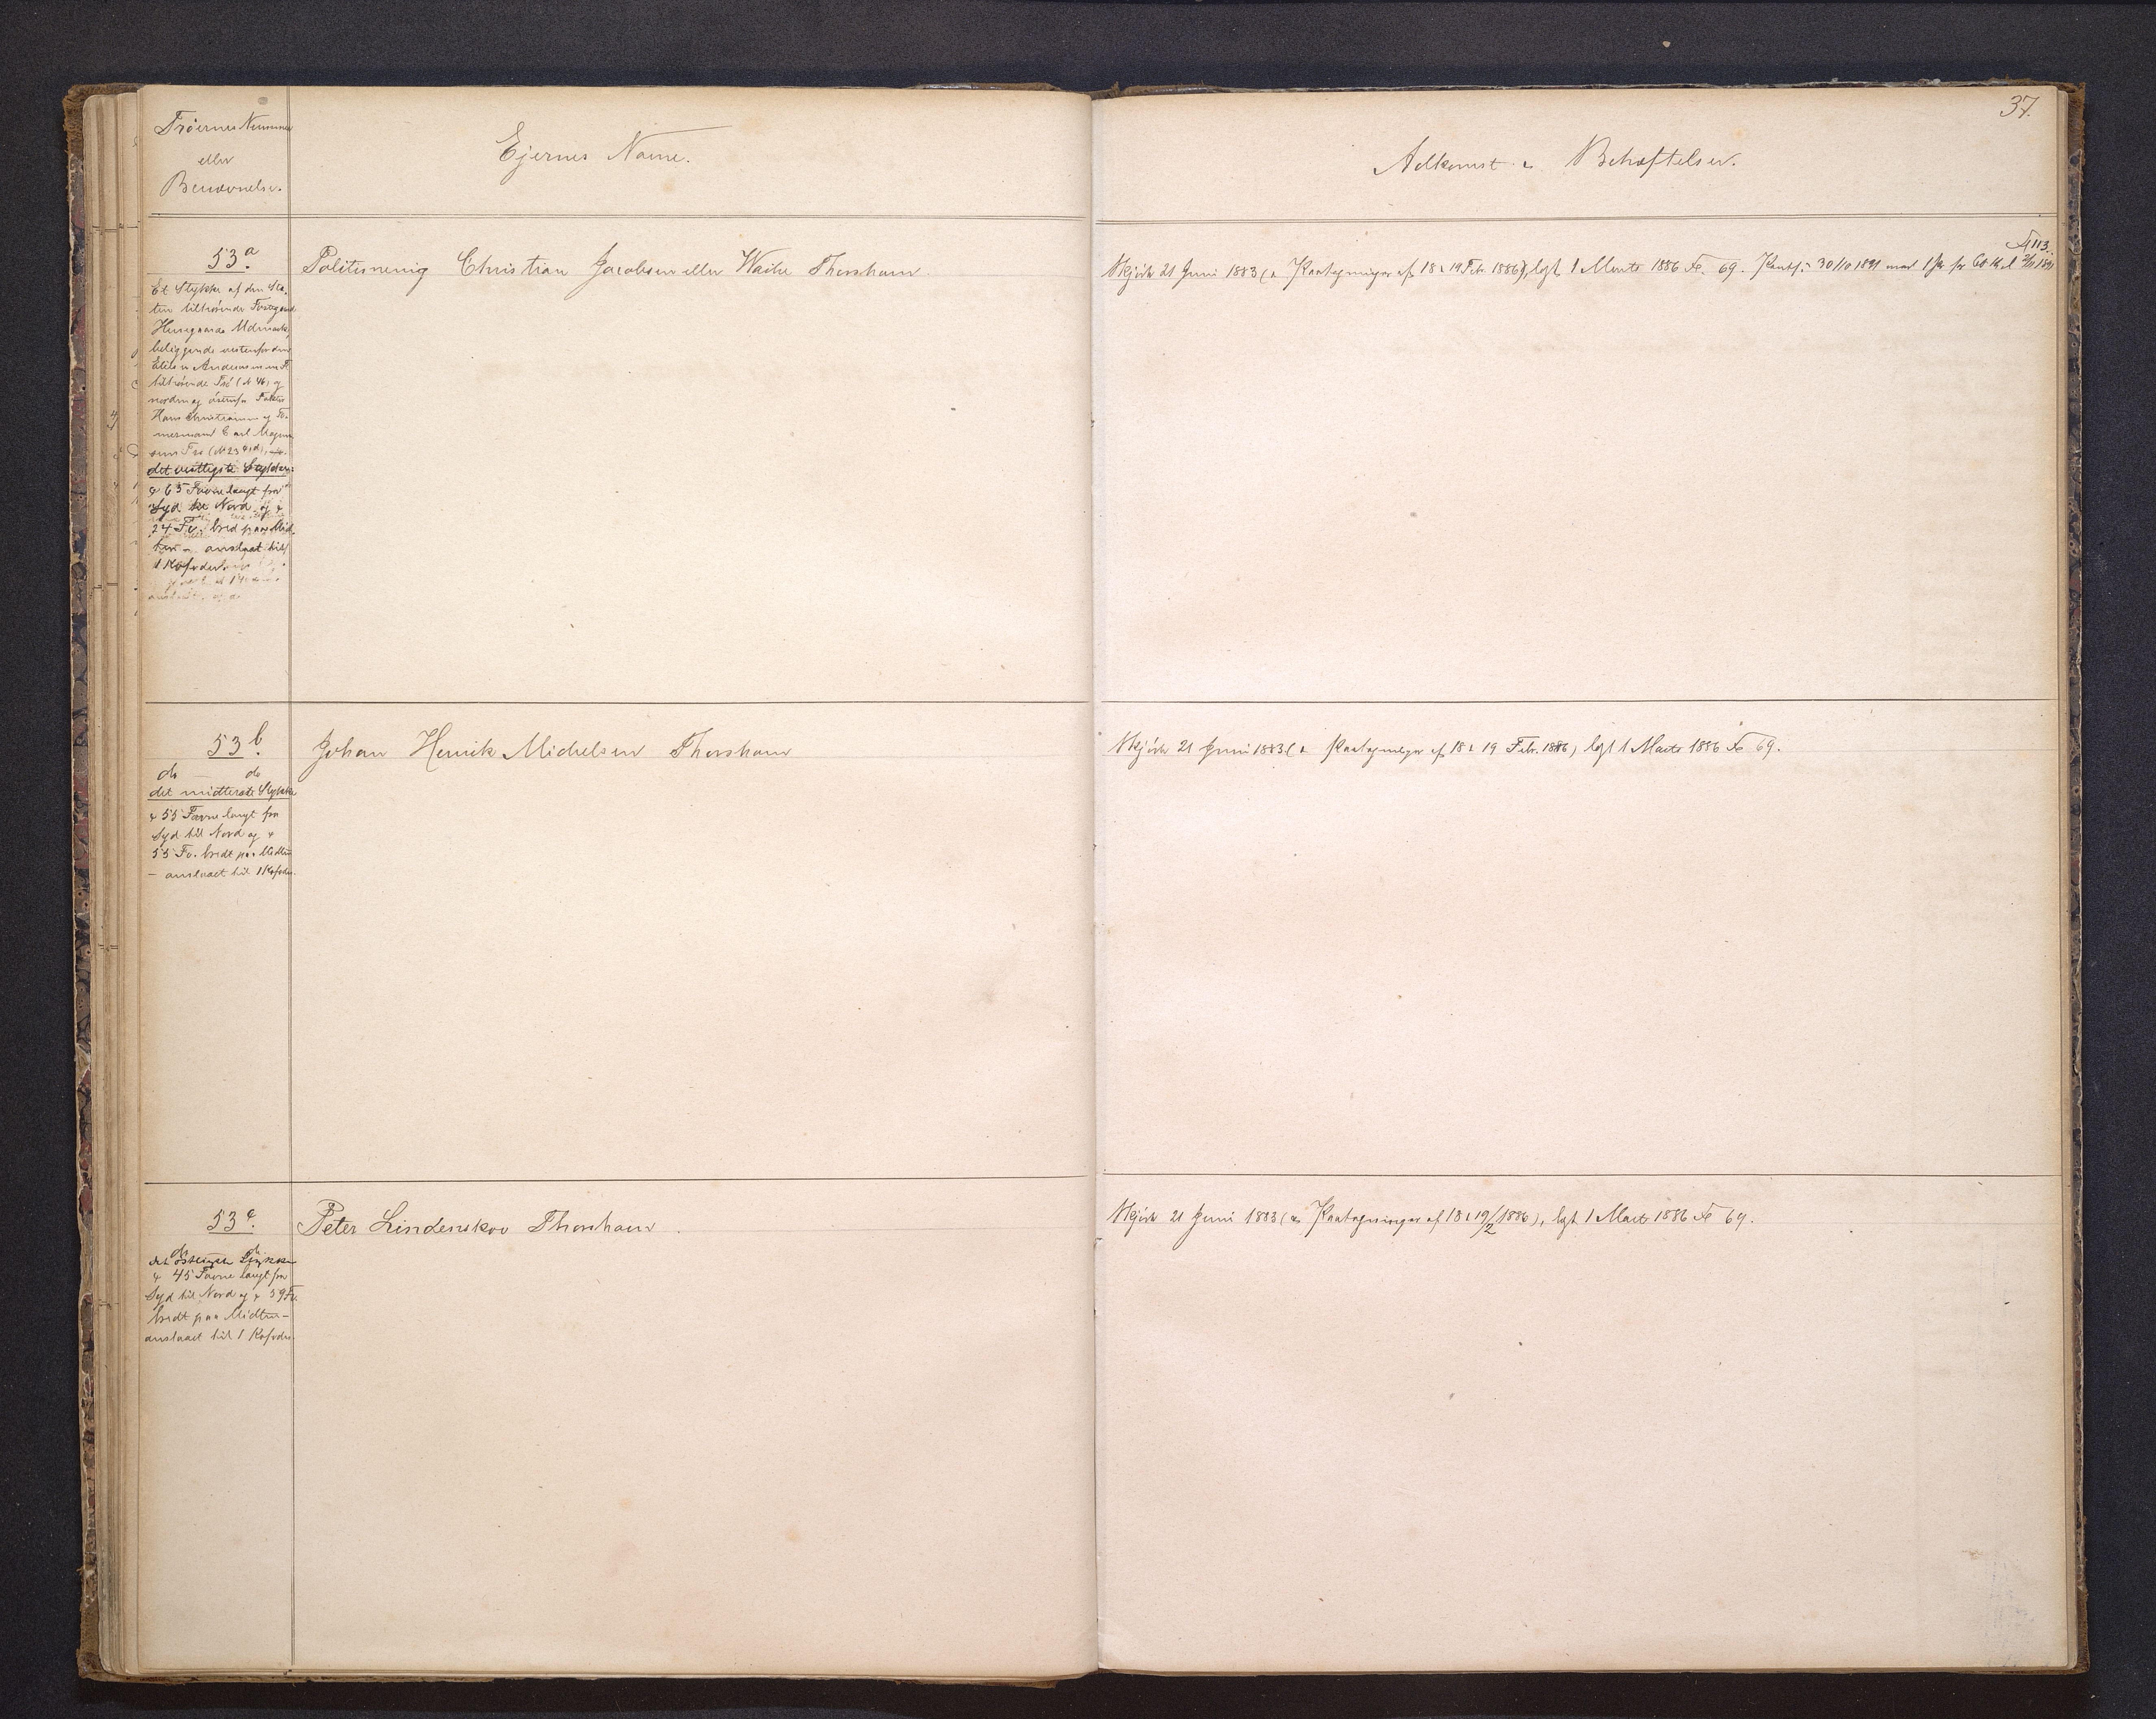 37.
Trøernes Nummer
eller
Benævnelse.
Ejernes Navne.
Adkomst & Behæftelser.
53 a.
Et Stykke af den Sta-
ten tilhørende Fæstegaard
Huusgaards Udmark,
beliggende vestenfor den
tilhørende Trø (N 46) og
norden og østenfor
Hans Christiansen og
Trø (N 23
det vestligste Stykke:
65 Favne langt fra
Syd til Nord og
24 Fv. bred paa Mid-
ten – anslaaet til
1 Kofoder.
Politimenig Christian Jacobsen eller Waihe Thorshavn
Skjøde 21 Juni 1883 (& Paategninger af 18 & 19 Febr. 1886), lyst 1 Marts 1886 Fo. 69. Pantf: 30/10 1891 med 1 Pr for 60 Kr l 2/11 1891
Fo 113.
53 b.
do do
det midterste Stykke
55 Favne langt fra
Syd til Nord og
55 Fv. bredt paa Midten
– anslaaet til 1 Kofoder.
Johan Henrik Michelsen Thorshavn
Skjøde 21 Juni 1883 (& Paategninger af 18 & 19 Febr. 1886), lyst 1 Marts 1886 Fo 69.
53 c.
do do
det østligste Stykke
45 Favne langt fra
Syd til Nord og 59 Fv.
bredt paa Midten –
anslaaet til 1 Kofoder
Peter Lindenskov Thorshavn.
Skjøde 21 Juni 1883 (& Paategninger af 18 & 19/2 1886), lyst 1 Marts 1886 Fo 69.